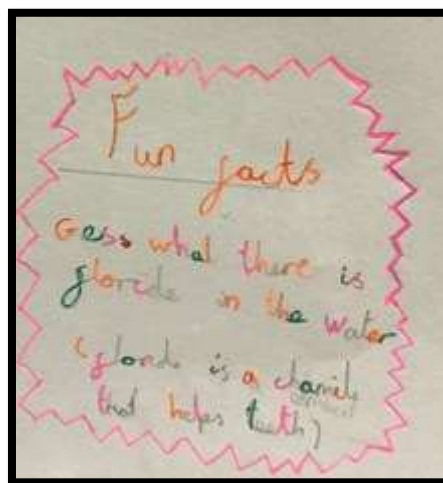 Fun facts
Gess what there is
floride in the water
(floride is a chamile
that helps teeth)